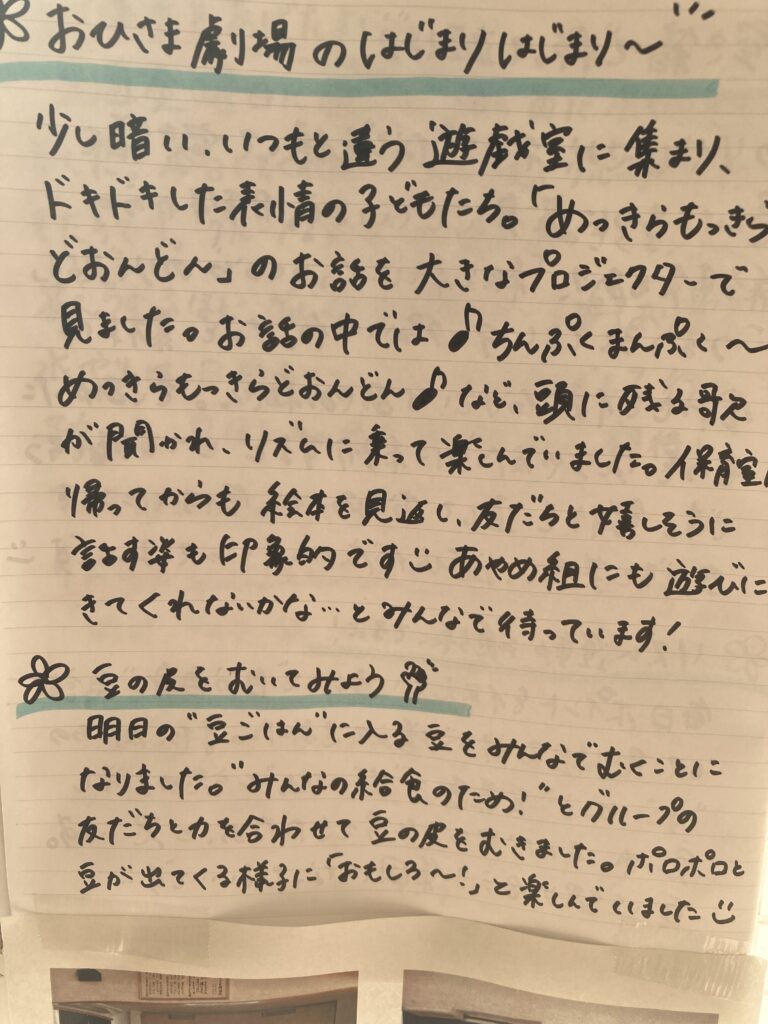 おひさま劇場のはじまりはじまり〜
少し暗い、いつもと違う遊戯室に集まり、
ドキドキした表情の子どもたち。「めっきらもっきら
どおんどん」のお話を大きなプロジェクターで
見ました。お話の中では♪ちんぷくまんぷく〜
めっきらもっきらどおんどん♪など、頭に残る歌
が聞かれ、リズムに乗って楽しんでいました。保育室に
帰ってからも絵本を見返し、友だちと嬉しそうに
話す姿も印象的です あやめ組にも遊びに
きてくれないかな…とみんなで待っています!
豆の皮をむいてみよう
明日の"豆ごはん"に入る豆をみんなでむくことに
なりました。"みんなの給食のため!"とグループの
友だちと力を合わせて豆の皮をむきました。ポロポロと
豆が出てくる様子に「おもしろ〜!」と楽しんでいました